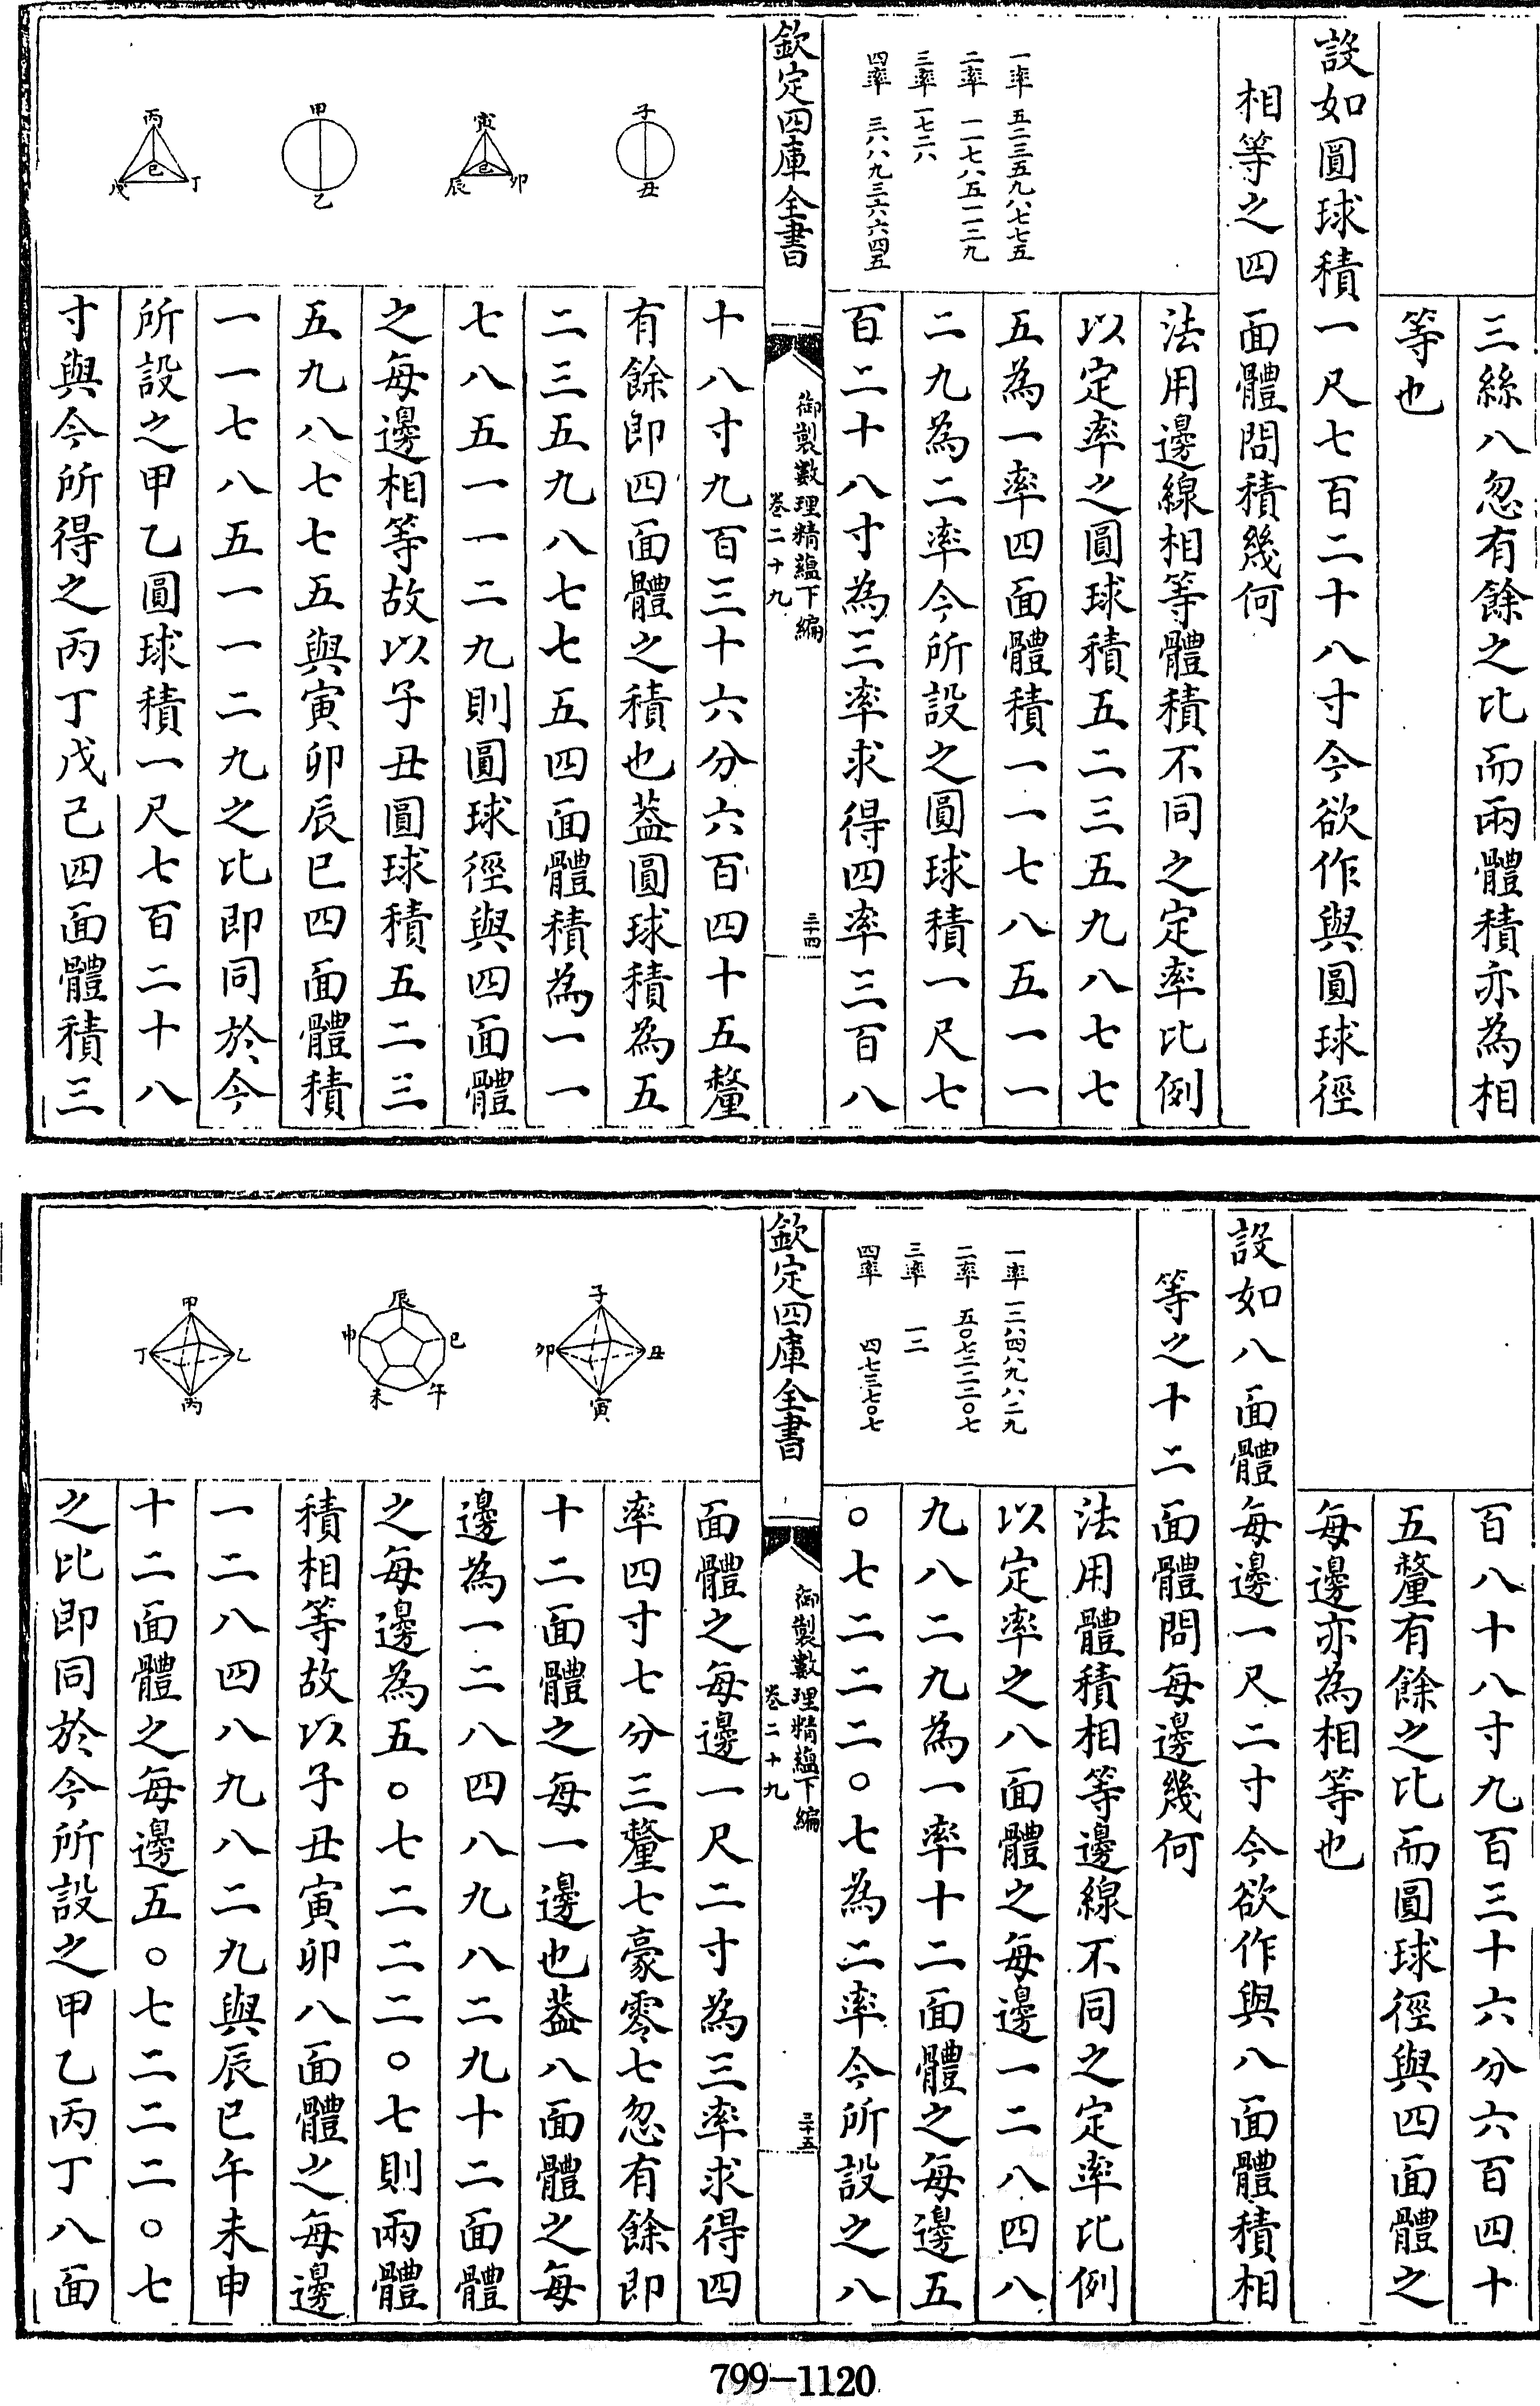 三絲八忽有餘之比而兩體積亦為相
等也
設如圓球積一尺七百二十八寸今欲作與圓球徑
相等之四面體問積幾何
一率 五二三五九八七七五
二率 一一七八五一一二九
三率 一七二八
四率 三八八九三六六四五
法用邊線相等體積不同之定率比例
以定率之圓球積五二三五九八七七
五為一率四面體積一一七八五一一
二九為二率今所設之圓球積一尺七
百二十八寸為三率求得四率三百八
欽定四庫全書
御製數理精蘊下編
卷二十九
三十四
十八寸九百三十六分六百四十五釐
有餘即四面體之積也葢圓球積為五
二三五九八七七五四面體積為一一
七八五一一二九則圓球徑與四面體
之每邊相等故以子丑圓球積五二三
五九八七七五與寅卯辰巳四面體積
一一七八五一一二九之比即同於今
所設之甲乙圓球積一尺七百二十八
寸與今所得之丙丁戊己四面體積三
子
丑
寅
卯
辰
巳
甲
乙
丙
丁
戊
己
百八十八寸九百三十六分六百四十
五釐有餘之比而圓球徑與四面體之
每邊亦為相等也
設如八面體每邊一尺二寸今欲作與八面體積相
等之十二面體問每邊幾何
一率 一二八四八九八二九
二率 五〇七二二二〇七
三率 一二
四率 四七三七〇七
法用體積相等邊線不同之定率比例
以定率之八面體之每邊一二八四八
九八二九為一率十二面體之每邊五
〇七二二二〇七為二率今所設之八
欽定四庫全書
御製數理精蘊下編
卷二十九
三十五
面體之每邊一尺二寸為三率求得四
率四寸七分三釐七豪零七忽有餘即
十二面體之每一邊也葢八面體之每
邊為一二八四八九八二九十二面體
之每邊為五〇七二二二〇七則兩體
積相等故以子丑寅卯八面體之每邊
一二八四八九八二九與辰巳午未申
十二面體之每邊五〇七二二二〇七
之比即同於今所設之甲乙丙丁八面
子
丑
寅
卯
辰
巳
午
未
申
甲
乙
丙
丁
799-1120